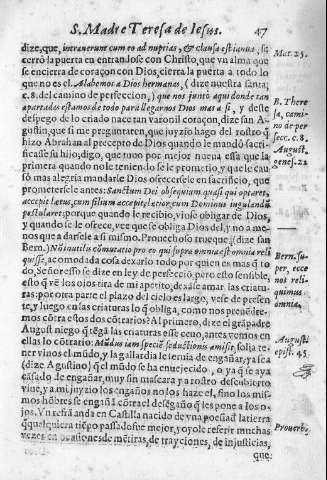 S. Madre Teresa de Iesus. 47
dize, que, intrauerunt cum eo ad nuptias, & clausa est ianua, si
cerrò la puerta en entrandose con Christo, que vn alma que
se encierra de coraçon con Dios, cierra la puerta a todo lo
que no es el. Alabemos a Dios hermanas, (dize nuestra santa,
c. 8. del camino de perfeccion,) que nos juntò aqui donde tan
apartadas estamos de todo para llegarnos Dios mas a si, y deste
despego de lo criado nace tan varonil coraçon, dize san A-
gustin, que si me preguntaren, que juyzio hago del rostro q̃
hizo Abrahan al precepto de Dios quando le mandò sacrifi-
casse su hijo, digo, que tuuo por mejor nueua essa que la
primera quando no le tenien-lo se le prometiò, y que le cau
sò mas alegria mandarle Dios ofrecerle en sacrificio, que
prometersele antes: Sanctum Dei obsequium quasi qui optaret,
accepit lætus, cum filium acceptæ lætior, cum Dominus ingulandũ
postularet: porque quando le recibio, viose obligar de Dios,
y quando se le ofrece, vee que se obliga Dios del, y no a me-
nos que a darsele a si mismo. Prouechoso trueque (dize san
Bern.) Nũ inutilis cõmutatio pro eo qui super omnia est omnia reli
quisse, acomodada cosa dexarlo todo por quien es mas q̃ to
do, Señor esso se dize en ley de perfecciõ, pero esto sensible,
esto q̃ vẽ los ojos tira de mi apetito, desase amar las criatu-
ras: por otra parte el plazo del cielo es largo, vese de presen
te, y luego en las criaturas lo q̃ obliga, como nos preuẽdre-
mos cõtra estos dos cõtrarios? Al primero, dize el grã padre
August niego q̃ tẽgã las criaturas esse ceuo, antes vemos en
ellas lo cõtrario. Mũdus tam speciẽ seductionis amisit, solia te-
ner vinos el mũdo, y la gallardia le tenia de engañar, ya se a
(dize Agustino) q̃ el mũdo se ha enuejecido, o ya q̃ se aya
cãsado de engañar, muy sin mascara y a rostro descubierto
viue, y a mi juyzio los engaños no los haze el, sino los mis-
mos hõbres se engañã cõtra el desegaño q̃ les pone a los o-
jos. Vn refrã anda en Castilla nacido de vna poesia d latierra
q̃ qualquiera tiẽpo passado fue mejor, y oyole referir muchas
vezes en ocasiones de mẽtiras, de trayciones, de injusticias,
que
Mat. 25.
B. There
sa, cami-
no de per
fecc. c. 8.
August.
genes. 22
Bern. su-
per, ecce
nos reli-
quimus
omnia.
Augusti.
epist. 45
Prouerb.